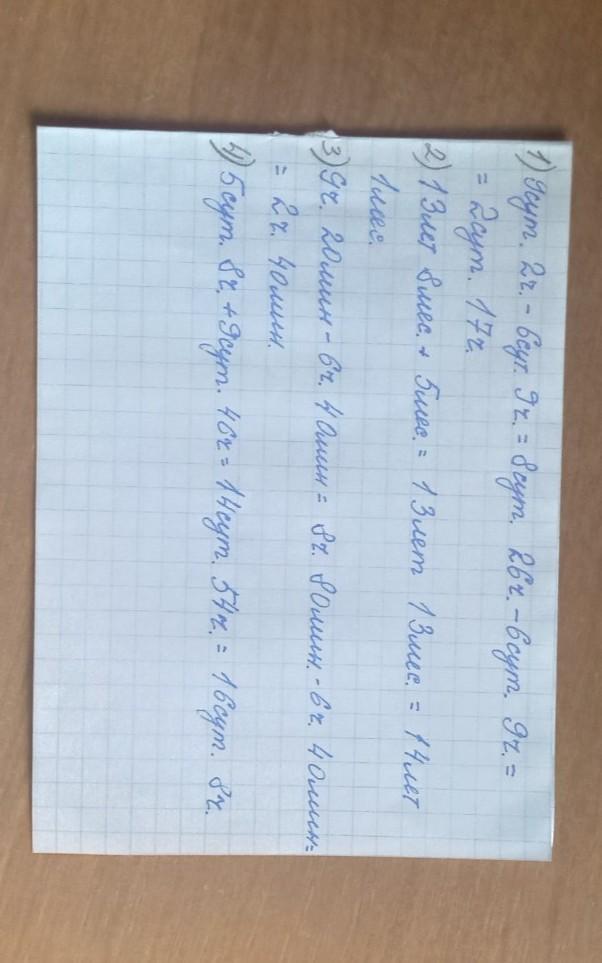 1) 9сут. 2ч. - 6сут. 9ч. = 8сут. 26ч. - 6сут. 9ч. =
= 2сут. 17ч.
2) 13лет 8мес. + 5мес. = 13лет 13мес. = 14лет
1мес.
3) 9ч. 20мин - 6ч. 40мин = 8ч. 80мин. - 6ч. 40мин =
= 2ч. 40мин.
4) 5сут. 8ч. + 9сут. 46ч = 14сут. 54ч. = 16сут. 8ч.